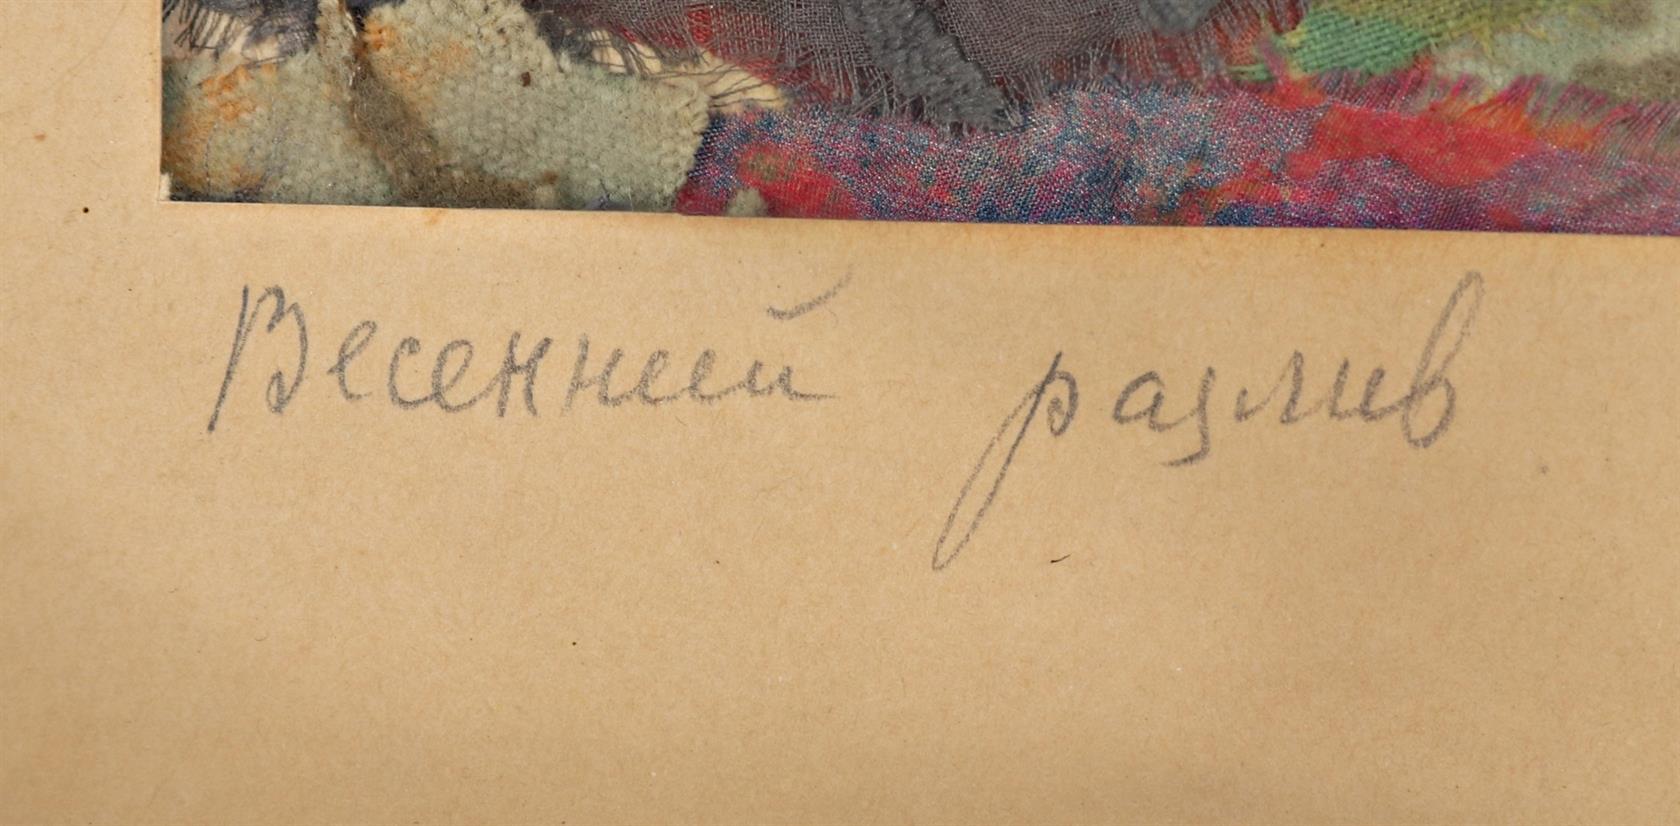 Весенний разлив